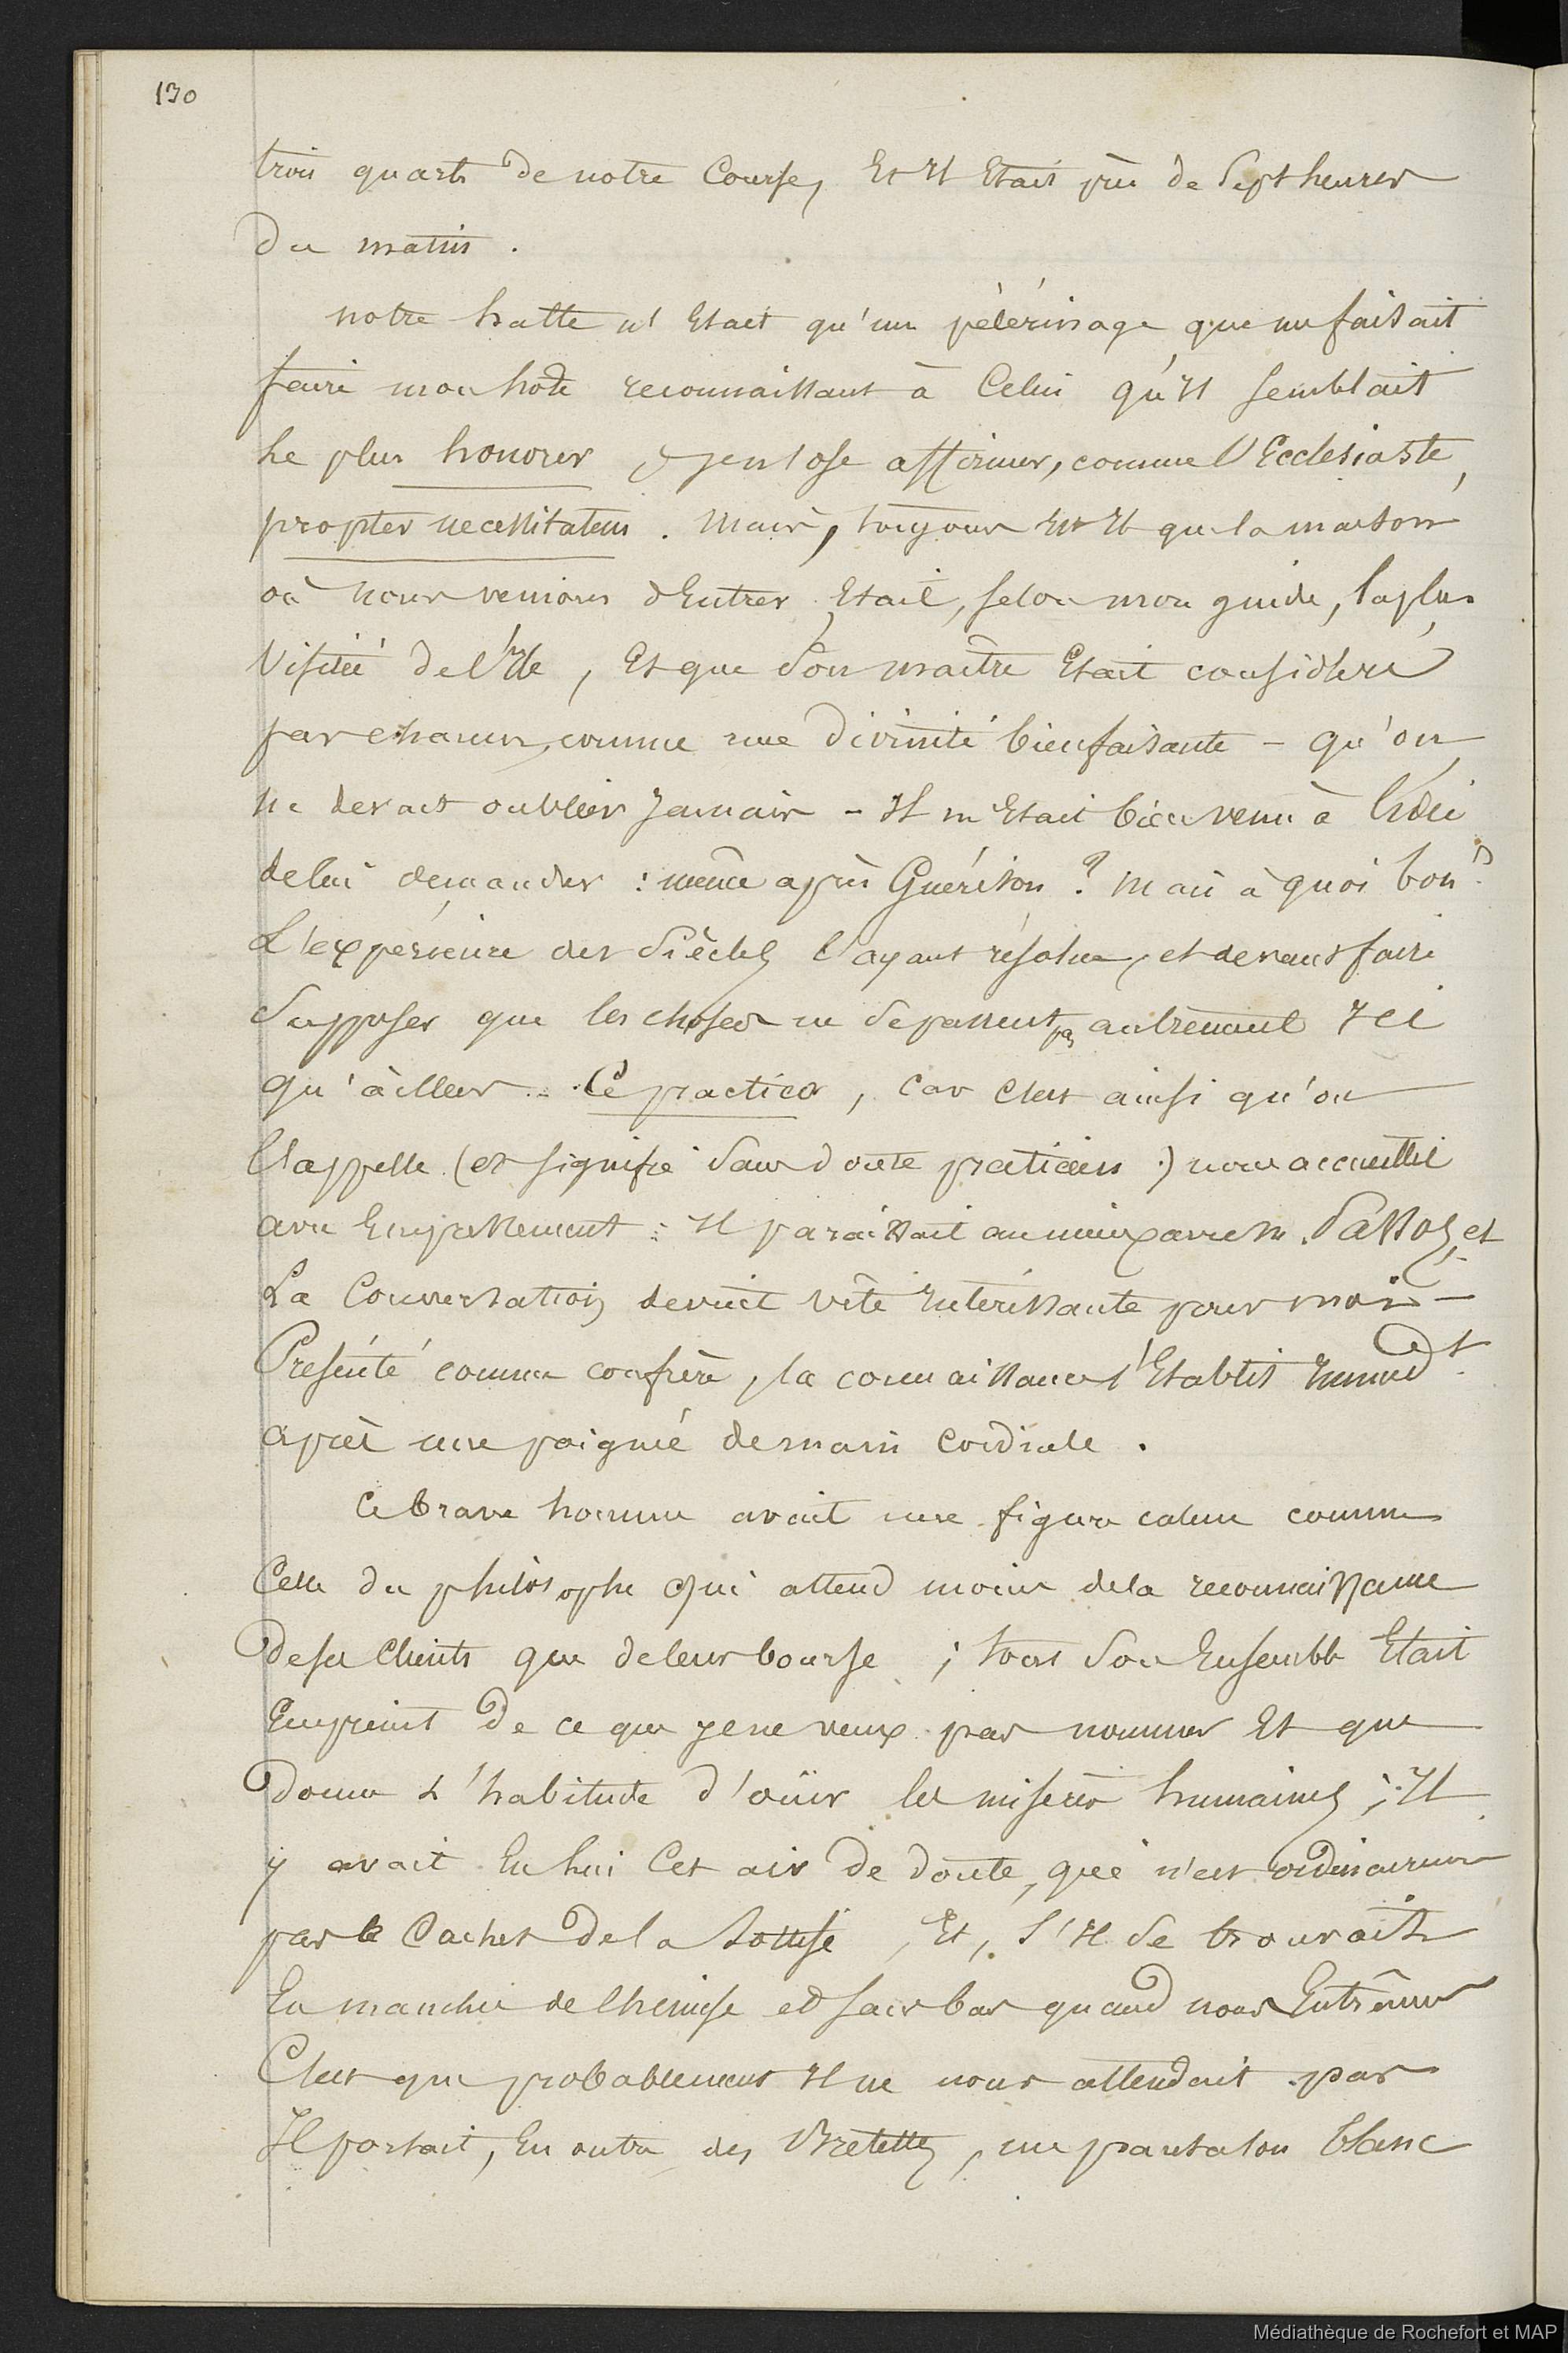 130
trois quarts de notre Course, Et Il Etait près de Sept heures
Du matin.
notre halte n'Etait qu'un pélérinage que me faisait
faire mon hôte reconnaissant à Celui qu'Il semblait
Le plus honorer je n'ose affirmer, comme l'Ecclésiaste,
propter necessitatem. Mais, toujours Est Il que la maison
où nous venions d'Entrer Etait, selon mon guide, la plus
Visitée de l'Ile, Et que Son maître Etait considéré
par chacun, comme une Divinité bienfaisante – qu'on
ne devait oublier Jamais – Il m'Etait bien venu à l'Idée
de lui demander : même après Guérison ? Mais à quoi bon ?
L'expérience des Siècles l'ayant résolue, et devant faire
Supposer que les choses ne Se passent pas autrement Ici
qu'ailleurs. Le practico, Car C'est ainsi qu'on
l'appelle (et signifie Sans doute praticien) nous accueillit
avec Empressement : Il paraissait au mieux avec M. Passos, et
La Conversation devint vite Intéressante pour moi –
Présenté comme confrère, la connaissance s'Etablit Immedt.
après une poignée de main Cordiale.
Ce brave homme avait une figure calme comme
Celle du philosophe Qui attend moins de la reconnaissance
De ses Clients que de leur bourse ; tout Son Ensemble Etait
Empreint De ce que je ne veux pas nommer Et que
Donne L'habitude d'ouïr les misères humaines ; Il
y avait En lui Cet air De Doute, qui n'est ordinairement
pas le Cachet De la Sottise, Et, S'Il Se trouvait
En manches de Chemise et sans bas quand nous Entrâmes
C'est que probablement Il ne nous attendait pas
Il portait, En outre des Bretelles, un pantalon blanc
Médiathèque de Rochefort et MAP